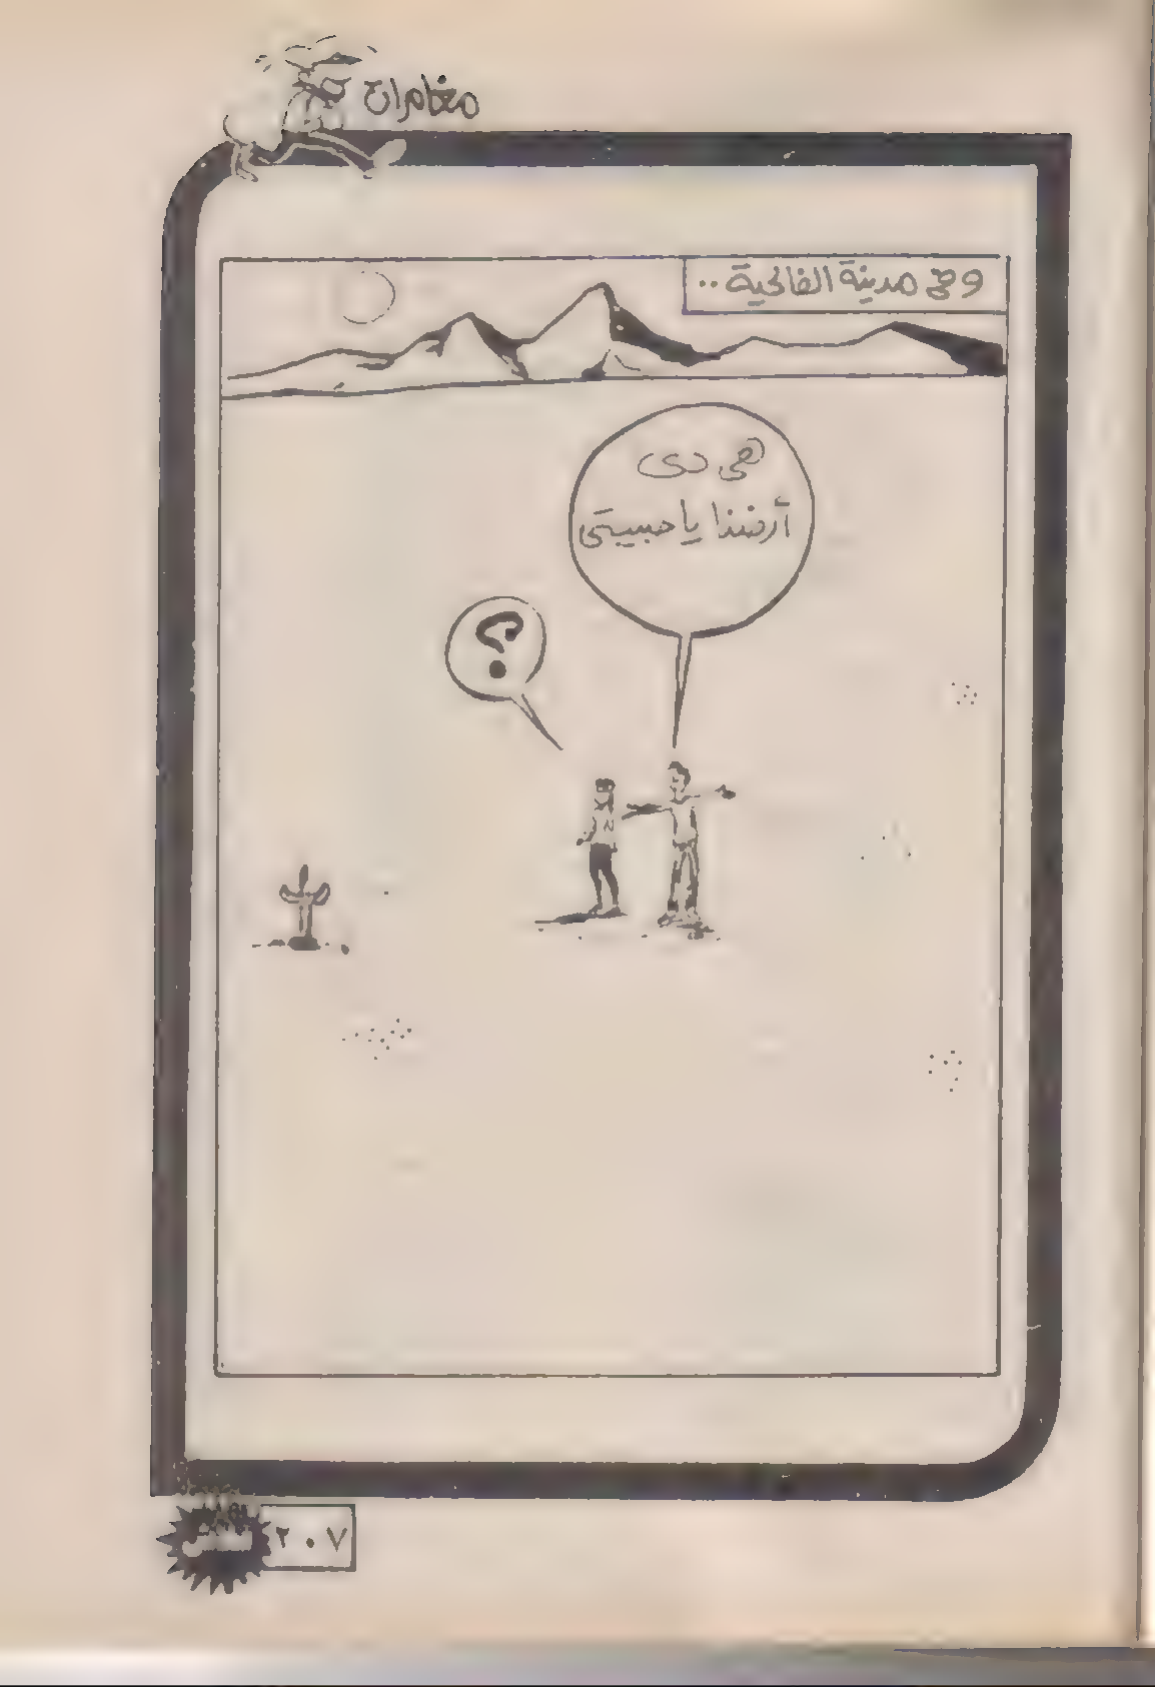 مغامرات
وفى مدينة الفالحية..
هى دى
أرضنا ياحبيبتى
؟
٢٠٧